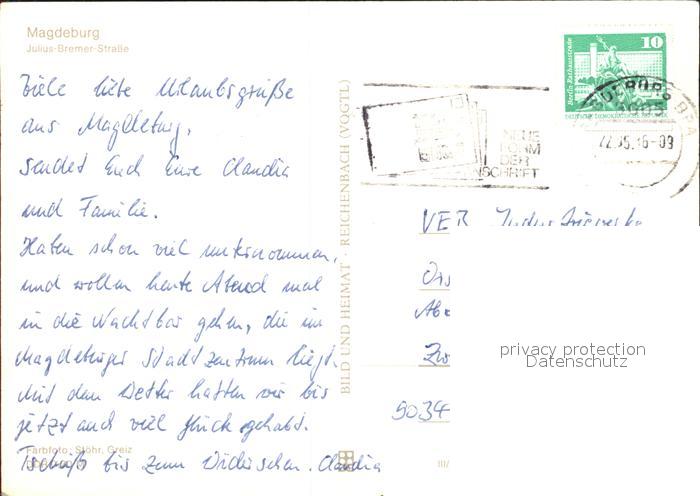 Magdeburg
Julius-Bremer-Straße
Viele liebe Urlaubsgrüße
aus Magdeburg,
sendet Euch Eure Claudia
und Familie.
Haben schon viel unternommen,
und wollen heute Abend mal
in die Nachtbar gehen, die im
Magdeburger Stadtzentrum liegt.
Mit dem Wetter hatten wir bis
jetzt auch viel Glück gehabt.
Tschüß bis zum Wiedersehen. Claudia
Farbfoto: Stöhr, Greiz
BILD UND HEIMAT · REICHENBACH (VOGTL)
III/
10
Berlin-Rathausstraße
DEUTSCHE DEMOKRATISCHE REPUBLIK
NEUE
FORM
DER
ANSCHRIFT
-09
VEB
9034
privacy protection
Datenschutz